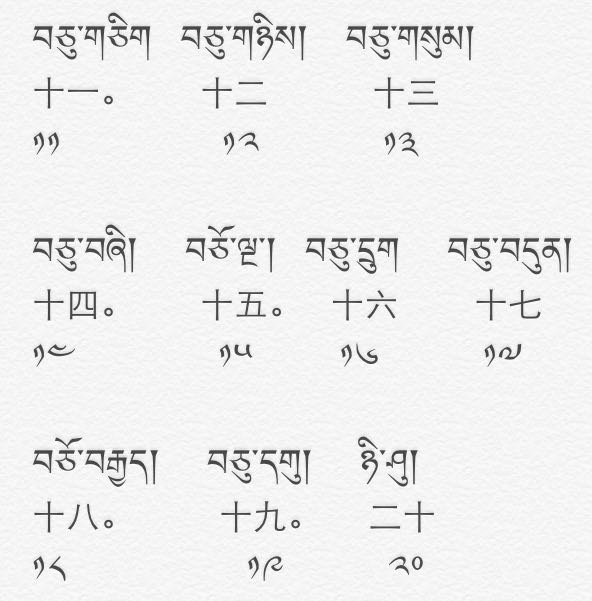 བཅུ་གཅིག བཅུ་གཉིས། བཅུ་གསུམ།
十一。 十二 十三
༡༡ ༡༢ ༡༣
བཅུ་བཞི། བཅོ་ལྔ་། བཅུ་དྲུག བཅུ་བདུན།
十四。 十五。 十六 十七
༡༤ ༡༥ ༡༦ ༡༧
བཅོ་བརྒྱད། བཅུ་དགུ། ཉི་ཤུ།
十八。 十九。 二十
༡༨ ༡༩ ༢༠